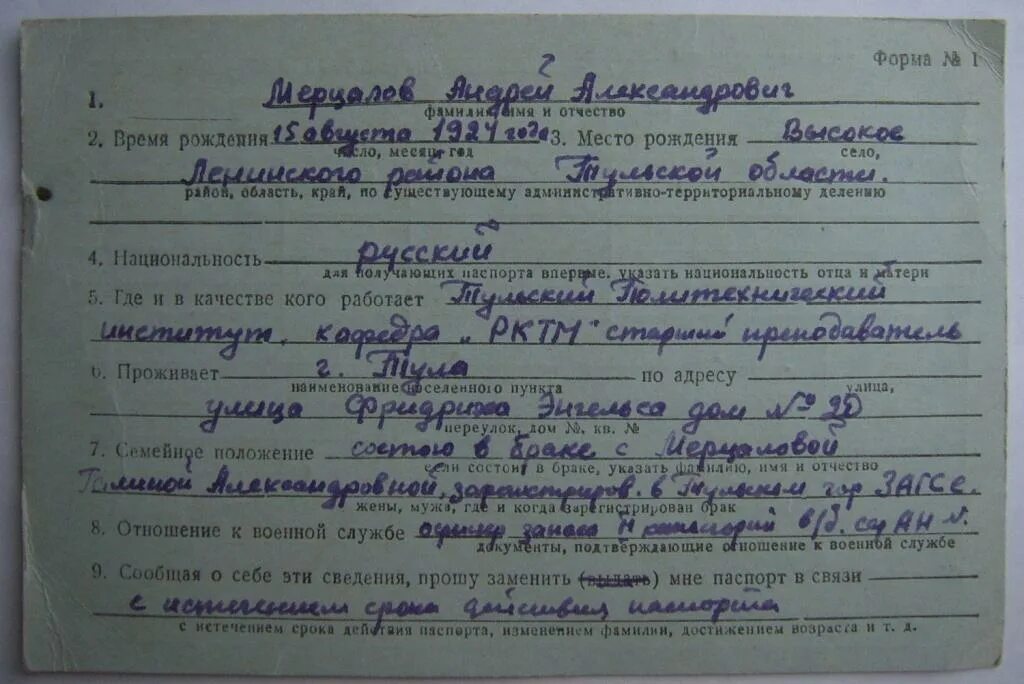 Форма № 1
1. Мерцалов Андрей Александрович
фамилия, имя и отчество
2. Время рождения 15 августа 1924 года 3. Место рождения Высокое
число, месяц, год село,
Ленинского района Тульской области.
район, область, край, по существующему административно-территориальному делению
4. Национальность русский
для получающих паспорта впервые. указать национальность отца и матери
5. Где и в качестве кого работает Тульский Политехнический
институт, кафедра „РКТМ" старший преподаватель
6. Проживает г. Тула по адресу
наименование населенного пункта улица,
улица Фридриха Энгельса дом № 20
переулок, дом №, кв. №
7. Семейное положение состою в браке с Мерцаловой
если состоит в браке, указать фамилию, имя и отчество
Галиной Александровной, зарегистриров. в Тульском гор ЗАГСе.
жены, мужа, где и когда зарегистрирован брак
8. Отношение к военной службе офицер запаса II категории в/б. сер АН №.
документы, подтверждающие отношение к военной службе
9. Сообщая о себе эти сведения, прошу заменить (выдать) мне паспорт в связи
с истечением срока действия паспорта
с истечением срока действия паспорта, изменением фамилии, достижением возраста и т. д.